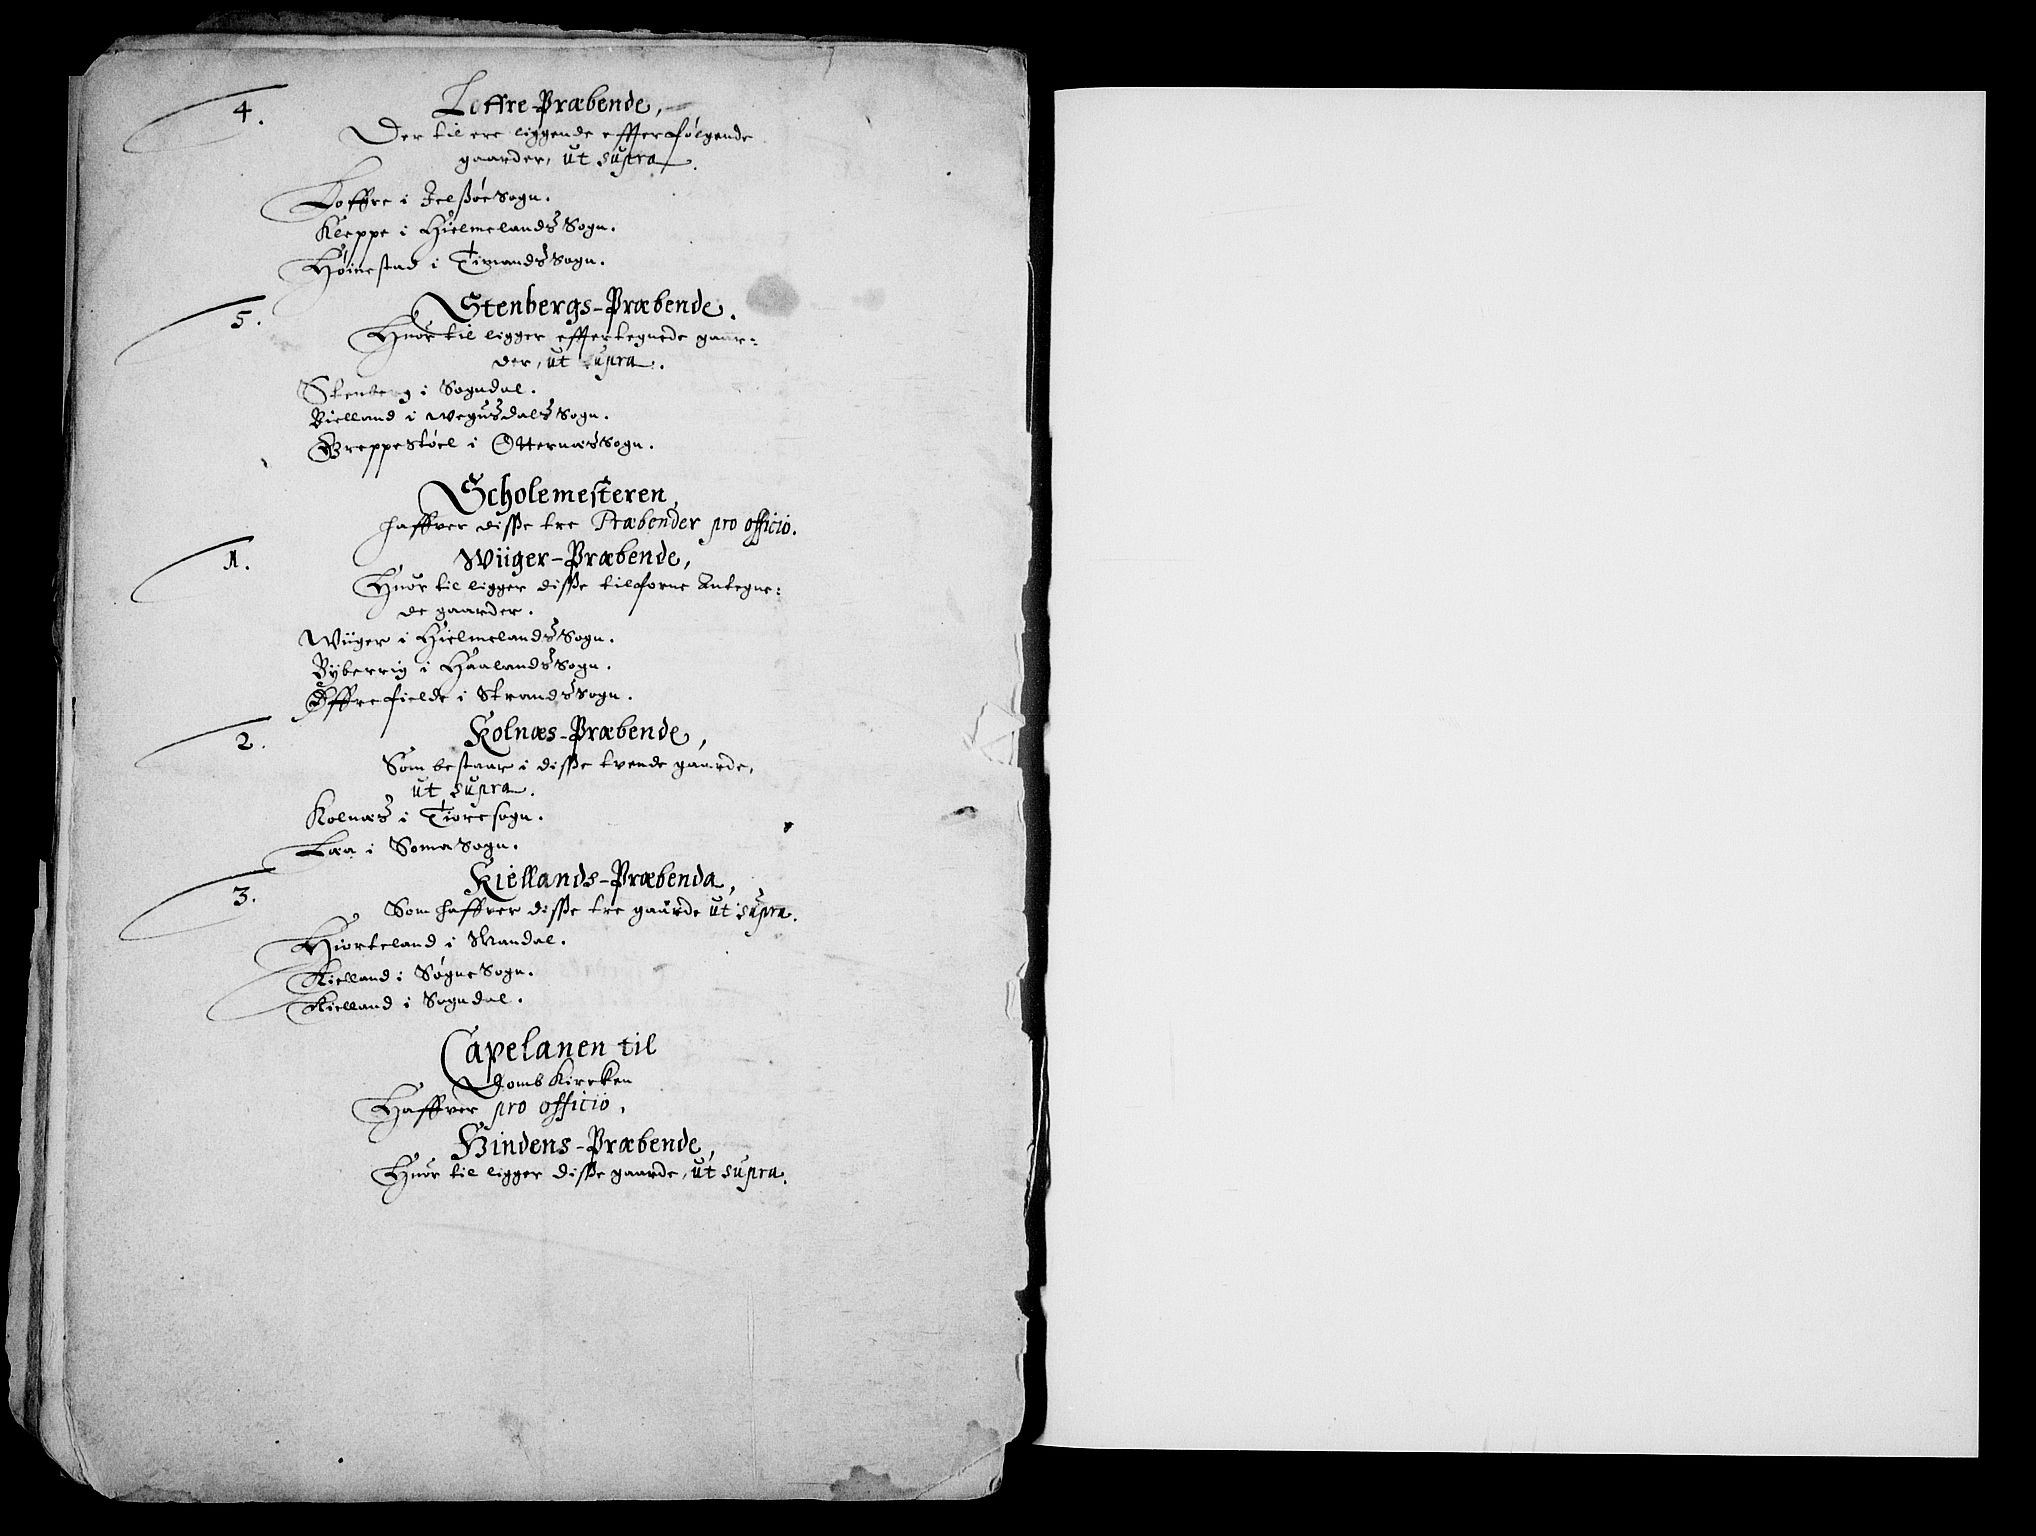 4. Loffre-Præbende,
Der til ere liggende effterfølgende
gaarder, ut supra.
Loffre i Jelsßøe Sogn.
Kleppe i Hielmelands Sogn.
Høinestad i Timands Sogn.
5. Stenbergs-Præbende.
Huor til ligger effterteignede gaar:
der, ut supra.
Stenberg i Sogndal.
Bielland i Wegusdals Sogn.
Greppestøel i Otternæs Sogn.
Scholemesteren,
haffver disße tre Præbender pro officio.
1. Wiiger-Præbende,
Huor til ligger disße tilforne Antegne:
de gaarder.
Wiiger i Hielmelands Sogn.
Byberrig i Haalands Sogn.
Øffrefielde i Strands Sogn.
2. Kolnæs-Præbende,
Som bestaar i disße tvende gaarde,
ut supra.
Kolnæs i Tiore sogn.
Laa i Soma Sogn.
3. Kiellands-Præbenda,
Som haffver disße tre gaarde ut supra.
Hiorteland i Mandal.
Kielland i Søgne Sogn.
Kielland i Sogndal.
Capelanen til
Domb Kircken
Haffver pro officio,
Hindens-Præbende,
Huor til ligger disße gaarde, ut supra.